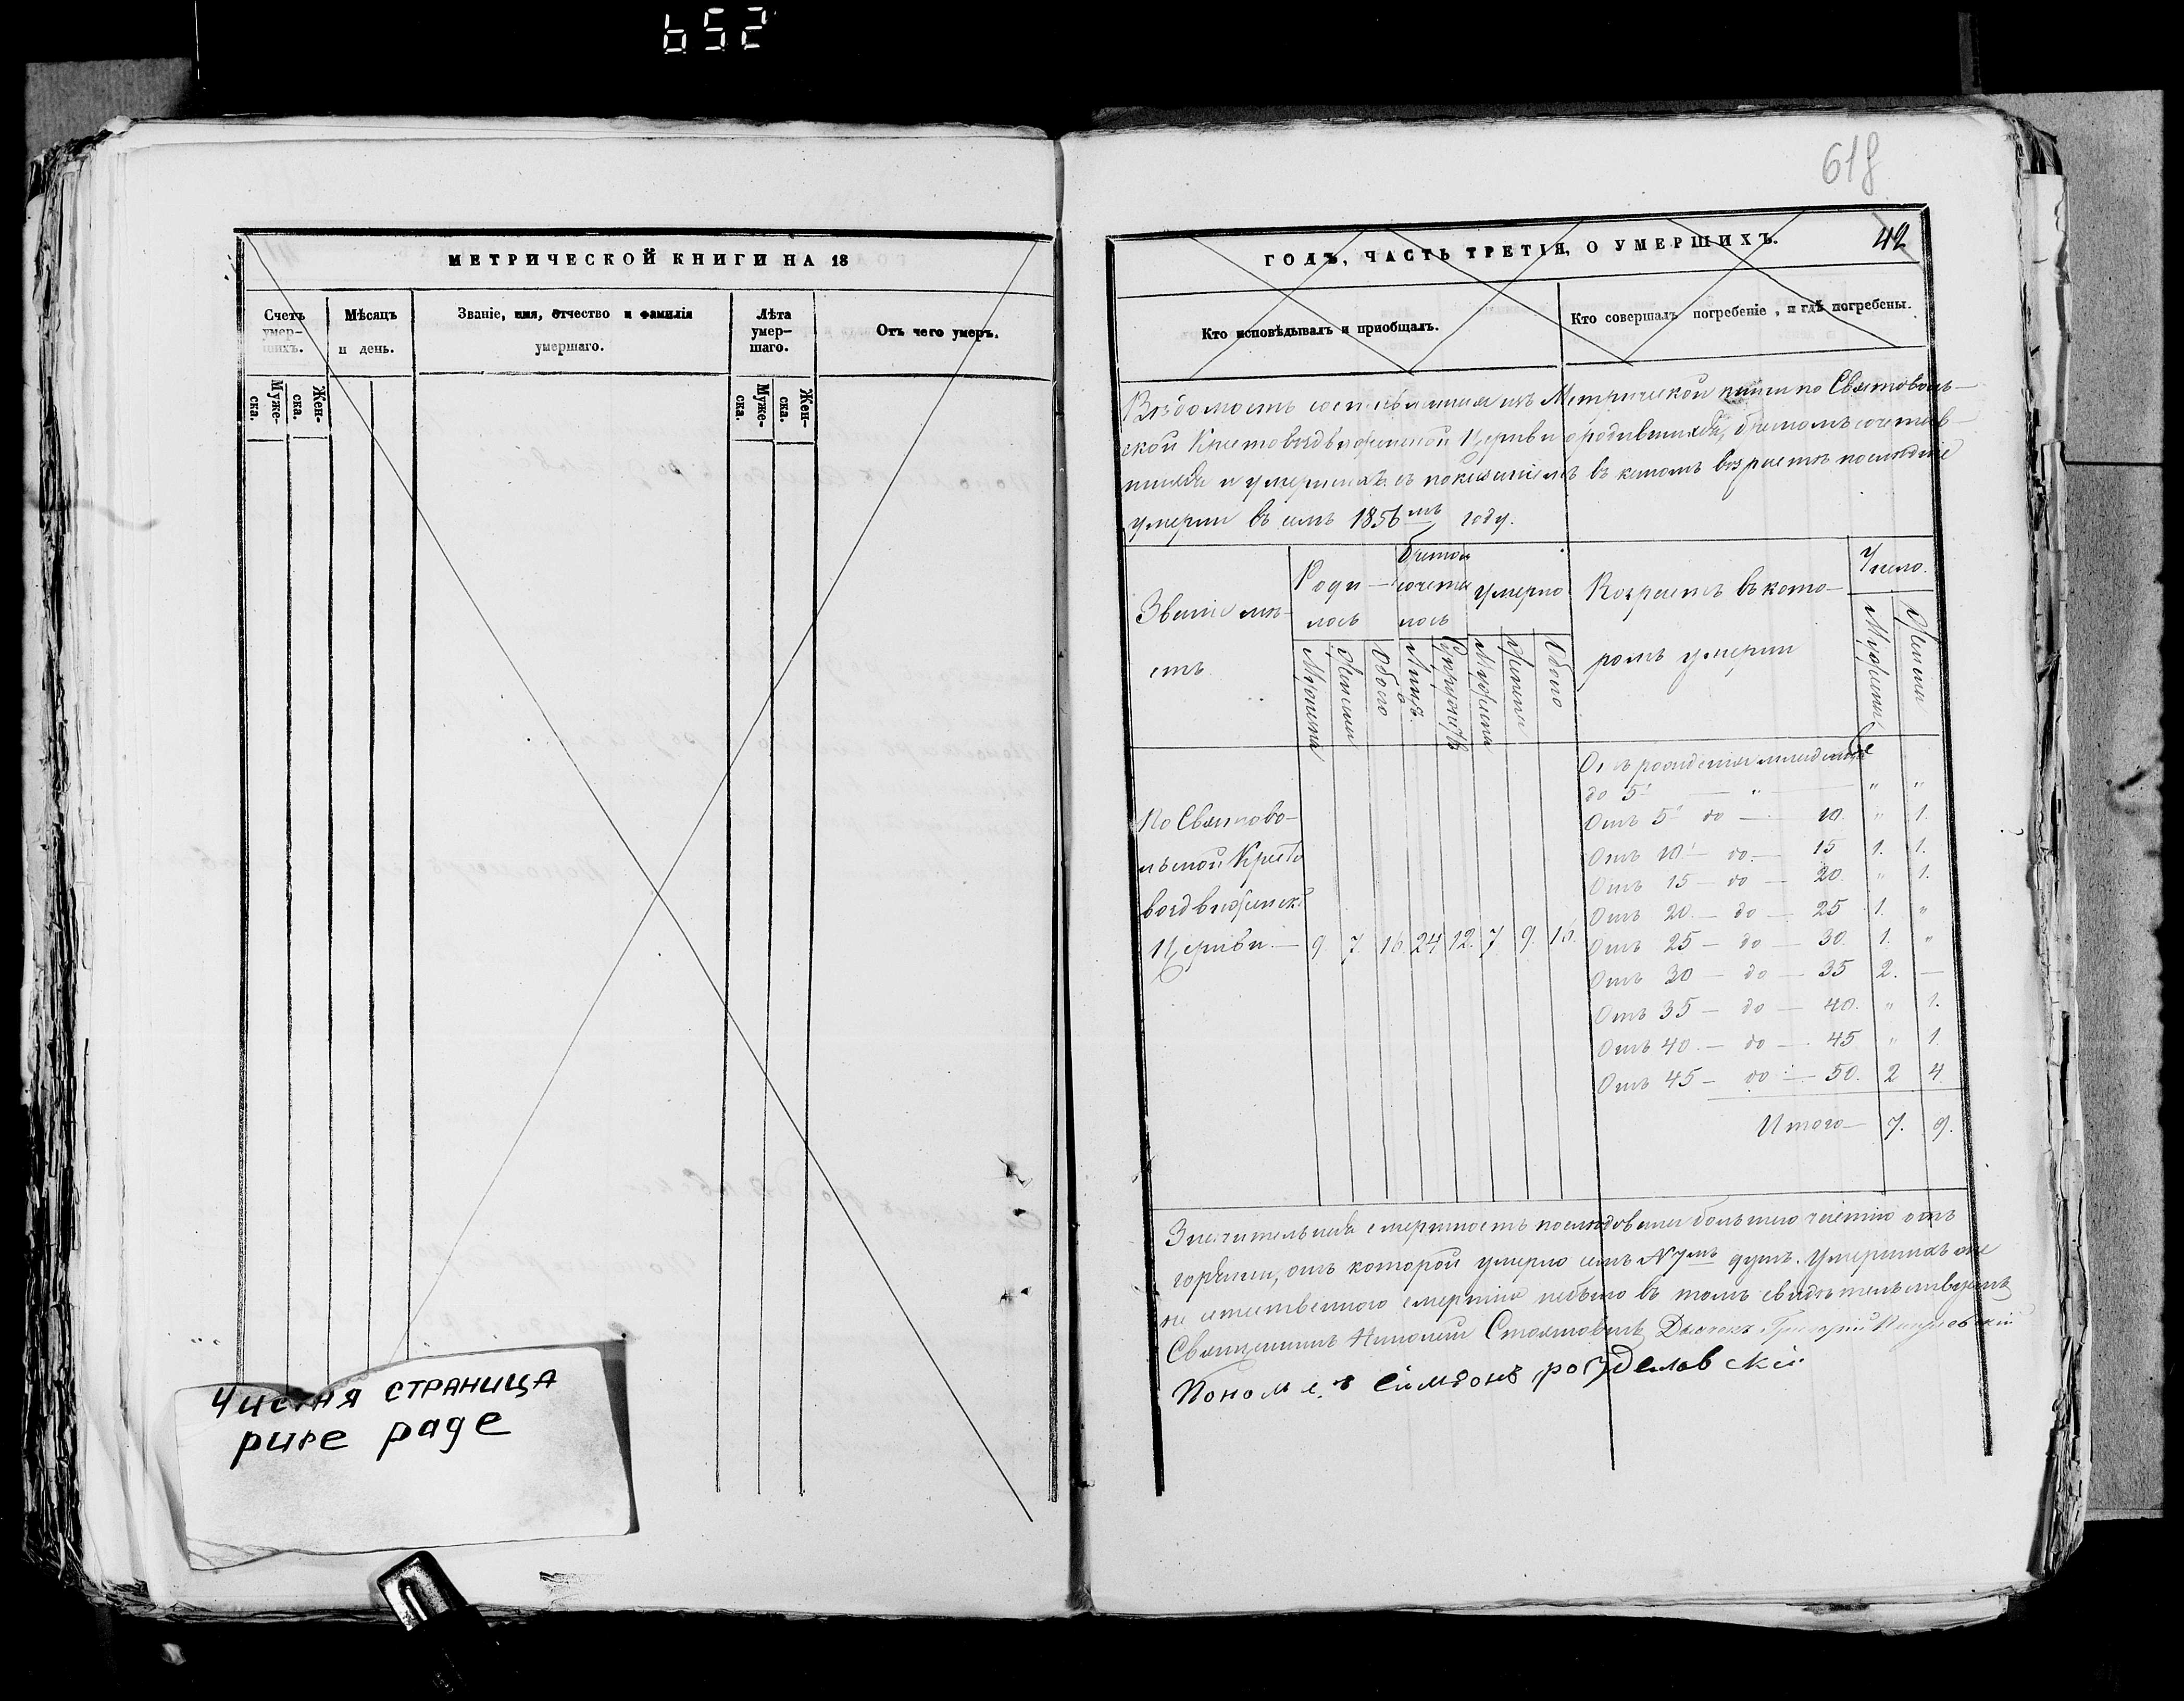 652
МЕТРИЧЕСКОЙ КНИГИ НА 18
Счетъ умер-шихъ.
Мѣсяцъ и день.
Званіе, имя, отчество и фамилія умершаго.
Лѣта умер-шаго.
Отъ чего умеръ.
Муже-ска.
Жен-ска.
Муже-ска.
Жен-ска.
Чистая страница
pure page
618
ГОДЪ, ЧАСТЬ ТРЕТІЯ, О УМЕРШИХЪ.
42
Кто исповѣдывалъ и приобщалъ.
Кто совершалъ погребеніе, и гдѣ погребены.
Вѣдомость составленная изъ Метрической книги по Святоволь-
ской Крестовоздвиженской Церкви о родившихся, бракомъ сочетав-
шихся и умершихъ съ показаніемъ въ какомъ возрастѣ послѣдніе
умерли въ семъ 1856мъ году.
Званіе мѣ-
стъ
Роди-
лось
Бракомъ
сочета
лось
Умерло
Возрастъ въ кото-
ромъ умерли
Число.
Мужеска
Женска
Обоего
Лицъ
Супружествъ
Мужеска
Женска
Обоего
Мужеска
Женска
Отъ рожденія младенцевъ
до 5 — " — " "
Отъ 5 до — 10. " 1.
Отъ 10 — до — 15 1. 1.
Отъ 15 — до — 20. " 1.
Отъ 20. — до — 25 1. "
Отъ 25 — до — 30. 1. "
Отъ 30 — до — 35 2. —
Отъ 35 — до — 40. " 1.
Отъ 40. — до — 45 " 1.
Отъ 45 — до — 50. 2 4
Итого — 7. 9.
По Святово-
льской Кресто
воздвиженск.
Церкви. — 9. 7. 16. 24 12. 7 9. 16.
Значительная смертность послѣдовала большею частію отъ
горячки, отъ которой умерло семь N 7мь душъ. Умершихъ
не естественною смертію небыло въ томъ свидѣтельствуемъ
Священникъ Николай Дьячокъ Григорій
Пономарь Симеонъ